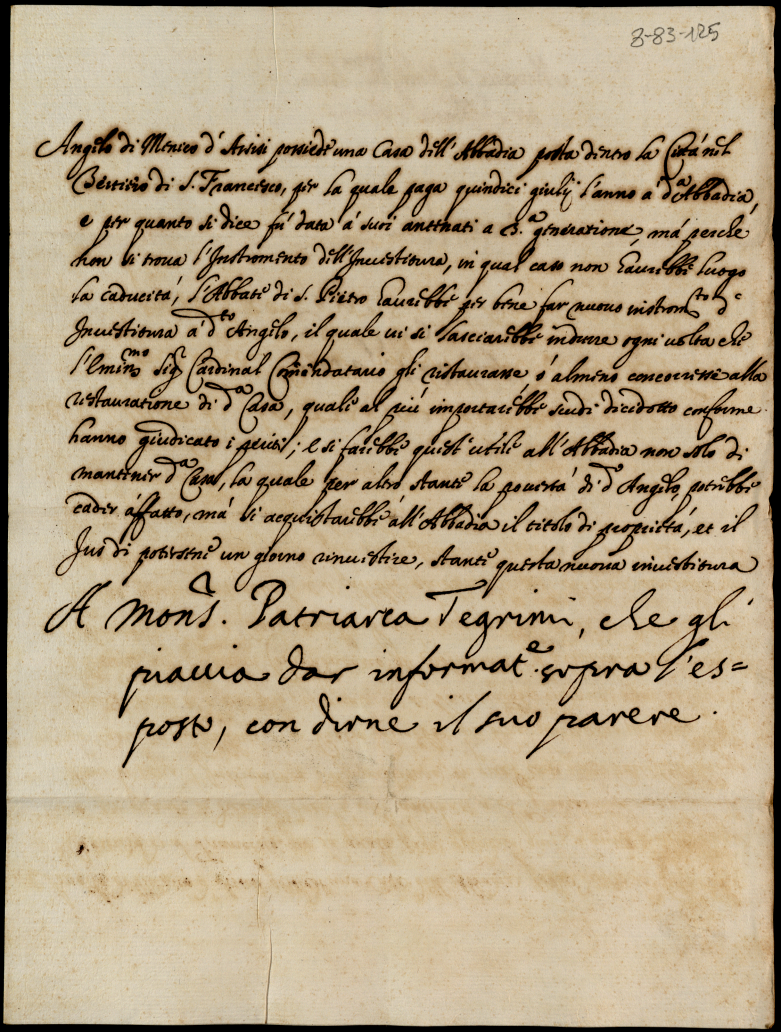 8-83-125
Angelo di Menico d'Assisi possiede una Casa dell'Abbadia posta dentro la Città nel
di S. Francesco, per la quale paga quindici giulij l'anno á d.ᵃ Abbadia,
e per quanto si dice fú data á suoi antenati a 3.ᵃ generatione, má perche
non si trova l'Instromento dell'Investitura, in qual caso non haurebbe luogo
la caducitá, l'Abbate di S. Pietro haurebbe per bene far nuovo instrom.ᵗᵒ d=
Investitura á d.ᵗᵒ Angelo, il quale vi si lasciarebbe indurre ogni volta che
l'Emin.ᵐᵒ Sig.ʳ Cardinal Comendatario gli ristaurasse ó almeno concorresse alla
restauratione di d.ᵃ Casa, quale al piú importarebbe scudi dicidotto conforme
hanno giudicato i periti; e si farebbe quest'utile all'Abbadia non solo di
mantener d.ᵃ Casa, la quale per altro stante la povertá di d.ᵒ Angelo potrebbe
cader áffatto, má si acquistarebbe áll'Abbadia il titolo di proprietá, et il
Jus di potersene un giorno rinvestire, stante questa nuova investitura
A Mons.ʳ Patriarca Tegrimi, che gli
piaccia dar informat.ᵉ sopra l'es=
posto, con dirne il suo parere.